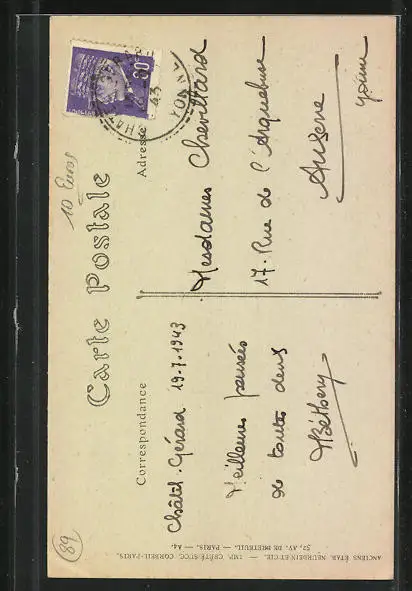 10 Euros
Carte Postale
Correspondance
Adresse
Châtel-Gérard 19-7-1943
Meilleures pensées
de toutes deux
MBéthery
Mesdames Chevillard
17. Rue de l'Arquebuse
Auxerre
Yonne
YONNE
43
89
ANCIENS ÉTAB. NEURDEIN ET CIE. — IMP. CRÉTÉ SUCC. CORBEIL-PARIS.
52, AV. DE BRETEUIL. — PARIS. — A4.